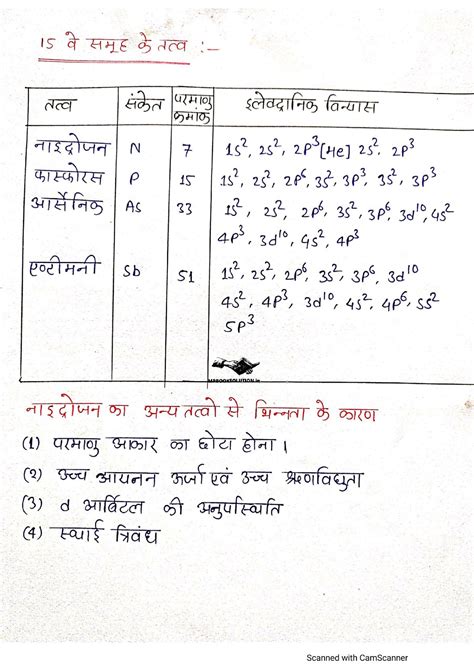 15 वे समूह के तत्व :-
तत्व संकेत परमाणु क्रमांक इलेक्ट्रानिक विन्यास
नाइट्रोजन N 7 1s², 2s², 2p³ [He] 2s², 2p³
फास्फोरस P 15 1s², 2s², 2p⁶, 3s², 3p³, 3s², 3p³
आर्सेनिक As 33 1s², 2s², 2p⁶, 3s², 3p⁶, 3d¹⁰, 4s²
4p³, 3d¹⁰, 4s², 4p³
एण्टीमनी Sb 51 1s², 2s², 2p⁶, 3s², 3p⁶, 3d¹⁰
4s², 4p³, 3d¹⁰, 4s², 4p⁶, 5s²
5p³
MPBOOKSOLUTION.in
नाइट्रोजन का अन्य तत्वो से भिन्नता के कारण
(1) परमाणु आकार का छोटा होना।
(2) उच्च आयनन ऊर्जा एवं उच्च ऋणविधुता
(3) d आर्बिटल की अनुपस्थिति
(4) स्थाई त्रिबंध
Scanned with CamScanner